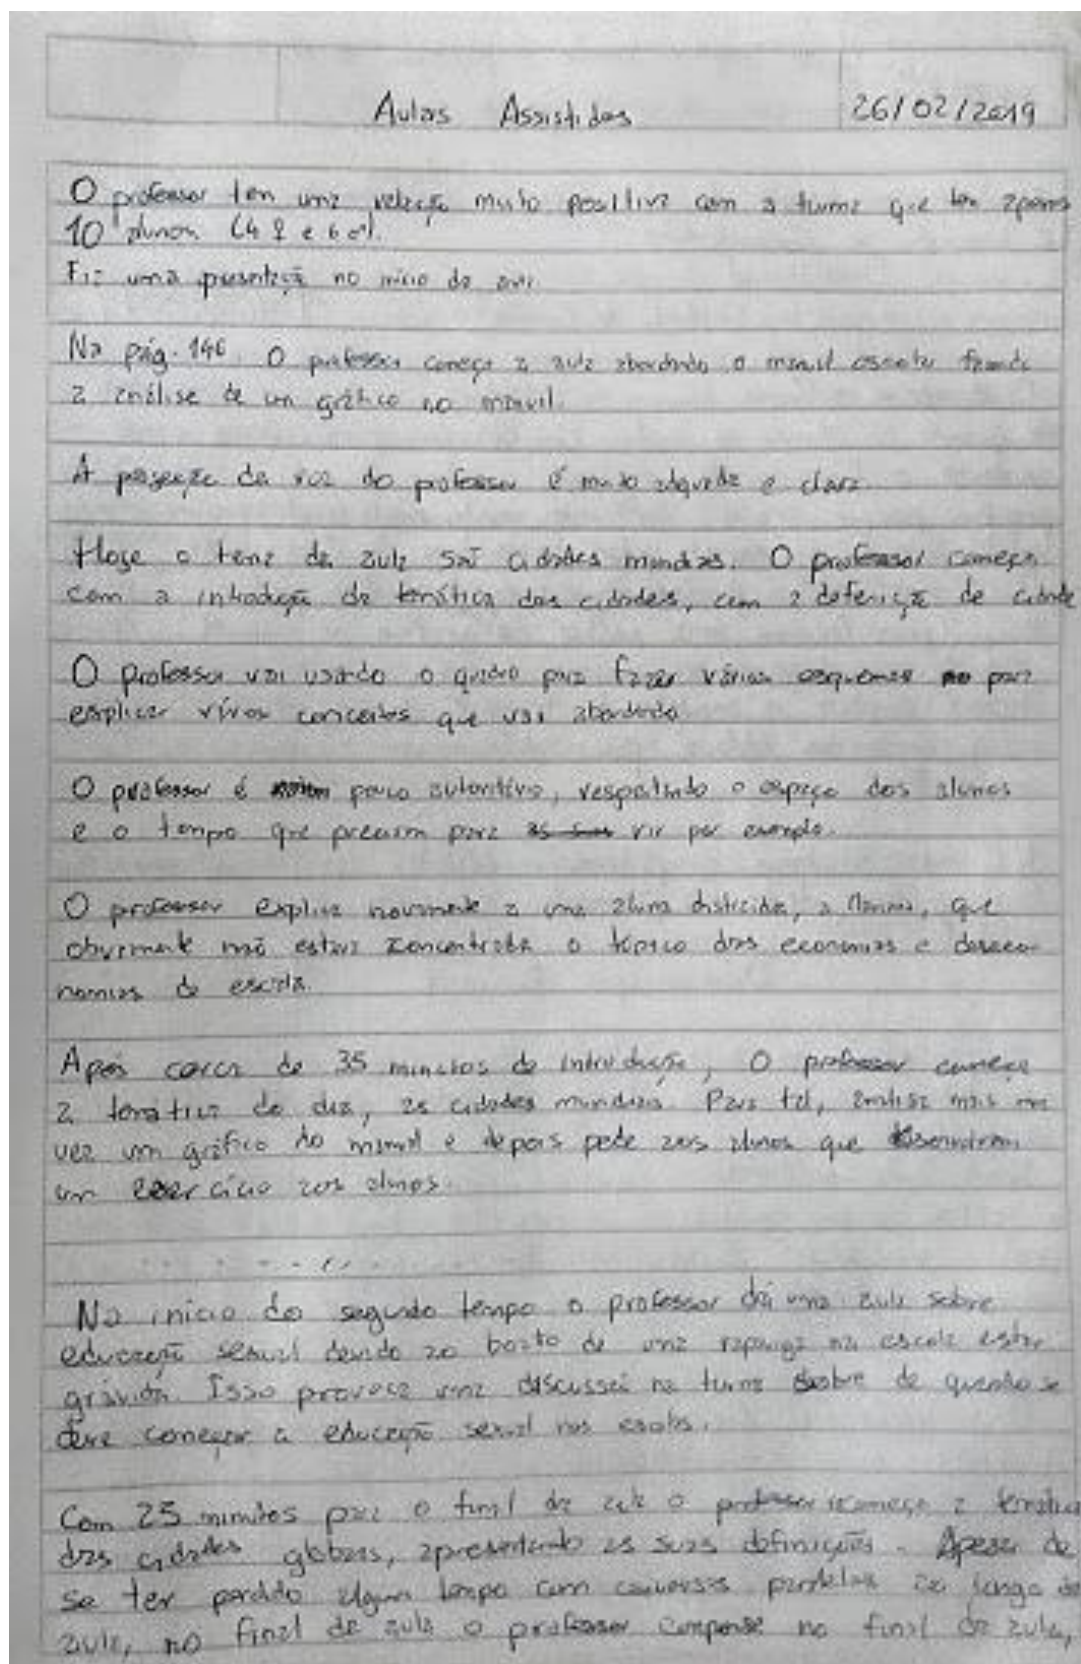 Aulas Assistidas
26/02/2019
O professor tem uma relação muito positiva com a turma que tem apenas
10 alunos (4 ♀ e 6 ♂).
Fiz uma presentação no início da aula.
Na pág. 146. O professor começa a aula abordando o manual escolar fazendo
a análise de um gráfico no manual.
A projeção da voz do professor é muito adquada e clara.
Hoje o tema da aula saõ cidades mundias. O professor começa
com a introdução da temática das cidades, com a defenição de cidade
O professor vai usando o quadro para fazer vários esquemas para
explicar vários conceitos que vai abordando.
O professor é pouco autoritário, respeitando o espaço dos alunos
e o tempo que precisam para rir por exemplo.
O professor explica novamente a uma aluna distraida, a que
obviamente não estava concentrada o tópico das economias e deseco-
nomias de escala.
Após cerca de 35 minutos de introdução, O professor começa
a temática do dia, as cidades mundiais. Para tal, analisa mais uma
vez um gráfico do manual e depois pede aos alunos que
um exercício aos alunos.
No início do segundo tempo o professor dá uma aula sobre
educação sexual devido ao boato de uma rapariga na escola estar
grávida. Isso provoca uma discussão na turma sobre de quando se
deve começar a educação sexual nas escolas.
Com 25 minutos para o final da aula o professor começa a temática
das cidades globais, apresentando as suas definições. Apesar de
se ter perdido algum tempo com conversas paralelas ao longo da
aula, no final da aula o professor compense no final da aula,